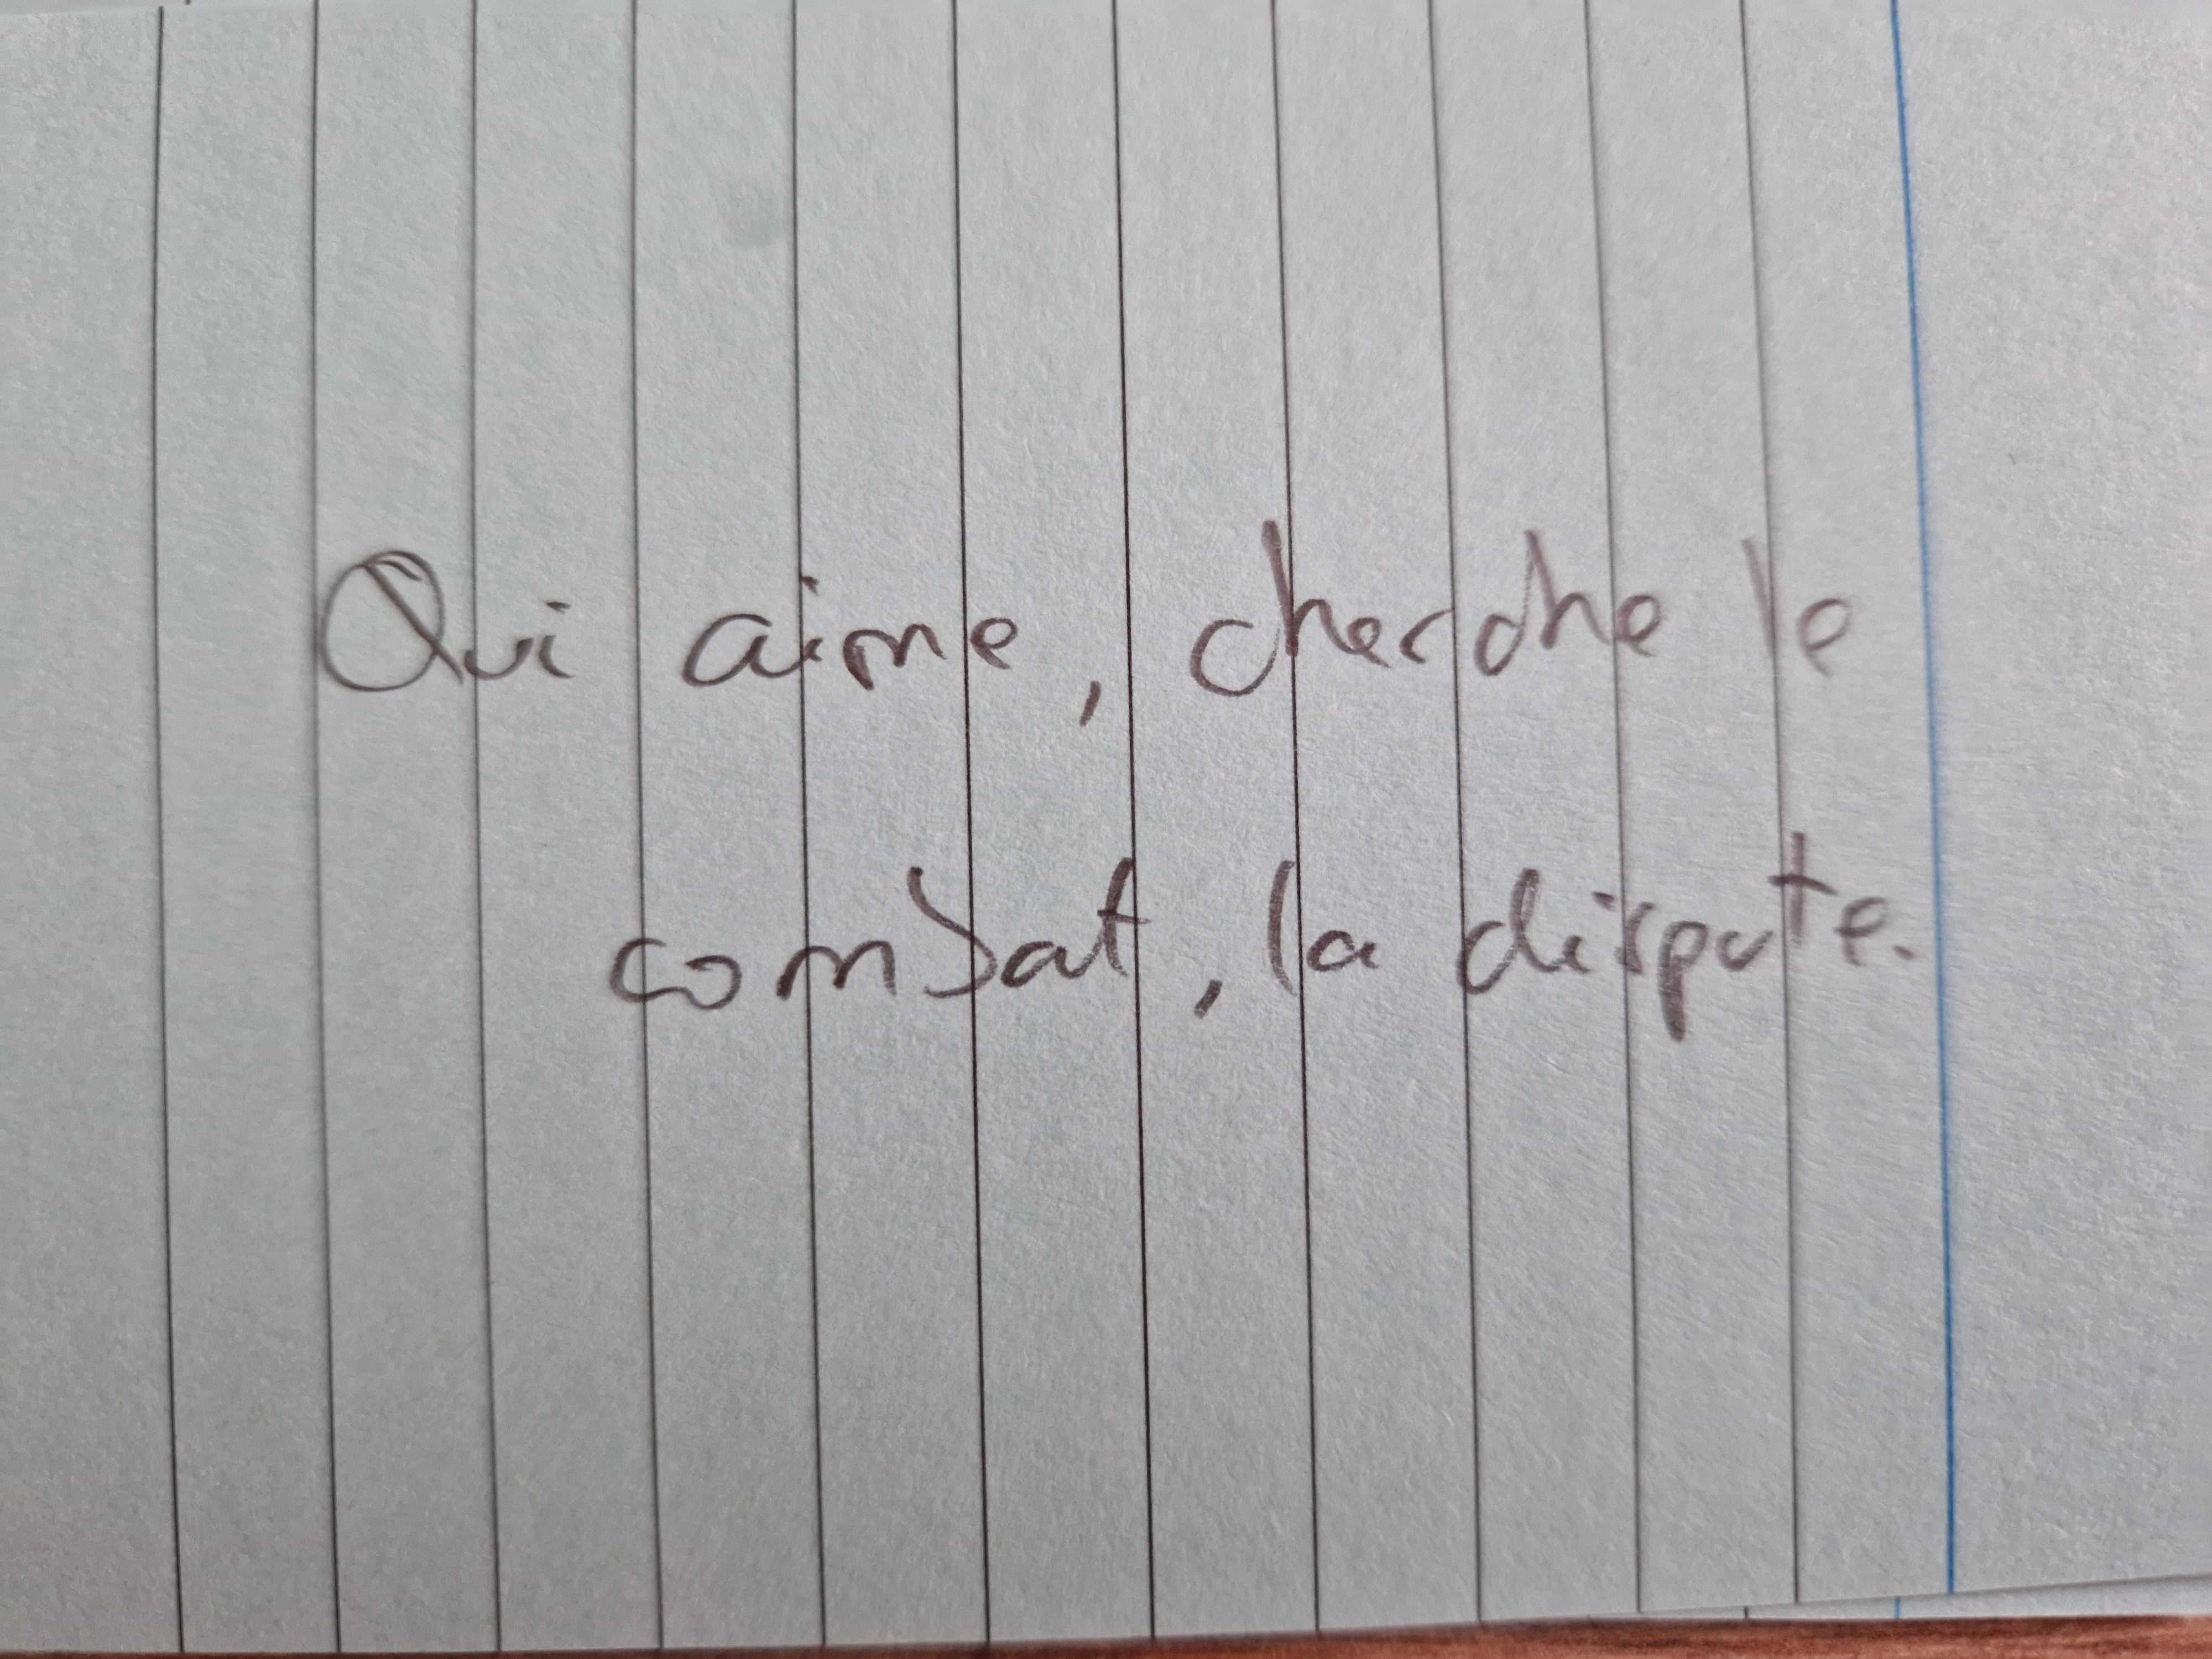 Qui aime, cherche le
combat, la dispute.